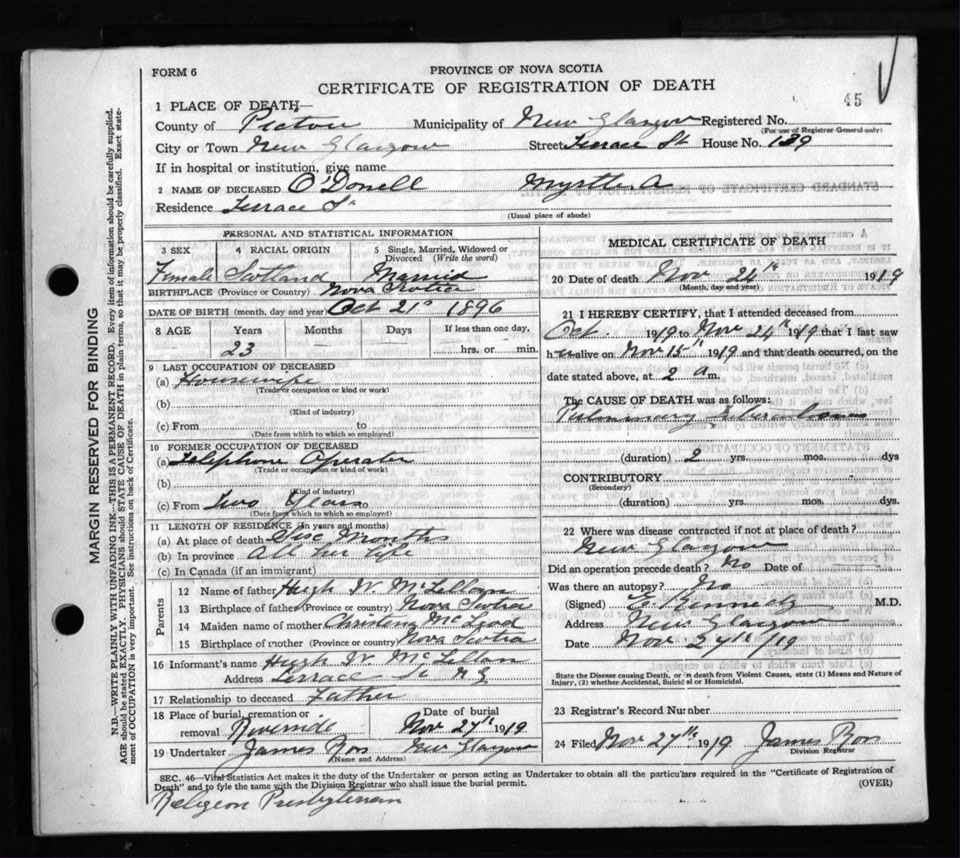 FORM 6
PROVINCE OF NOVA SCOTIA
CERTIFICATE OF REGISTRATION OF DEATH
45
1 PLACE OF DEATH—
County of Pictou Municipality of New Glasgow Registered No.
(For use of Registrar General only)
City or Town New Glasgow Street Terrace St House No. 189
If in hospital or institution, give name
2 NAME OF DECEASED O'Donell Myrtle A
Residence Terrace St
(Usual place of abode)
PERSONAL AND STATISTICAL INFORMATION
3 SEX 4 RACIAL ORIGIN 5 Single, Married, Widowed or Divorced (Write the word)
Female Scotland Married
BIRTHPLACE (Province or Country) Nova Scotia
DATE OF BIRTH (month, day and year) Oct 21st 1896
8 AGE Years Months Days If less than one day,
23 hrs. or min.
9 LAST OCCUPATION OF DECEASED
(a) Housewife
(Trade or occupation or kind or work)
(b)
(Kind of industry)
(c) From to
(Date from which to which so employed)
10 FORMER OCCUPATION OF DECEASED
(a) Telephone Operator
(Trade or occupation or kind of work)
(b)
(Kind of industry)
(c) From Two Years to
(Date from which to which so employed)
11 LENGTH OF RESIDENCE (in years and months)
(a) At place of death Six Months
(b) In province All her life
(c) In Canada (if an immigrant)
Parents
12 Name of father Hugh W. McLellan
13 Birthplace of father (Province or country) Nova Scotia
14 Maiden name of mother Christena McLeod
15 Birthplace of mother (Province or Country) Nova Scotia
16 Informant's name Hugh W. McLellan
Address Terrace St N G
17 Relationship to deceased Father
18 Place of burial, cremation or removal Riverside Date of burial Nov 27th 1919
19 Undertaker James Ross New Glasgow
(Name and Address)
MEDICAL CERTIFICATE OF DEATH
20 Date of death Nov 24th 1919
(Month, day and year)
21 I HEREBY CERTIFY, that I attended deceased from
Oct. 1919 to Nov 24th 1919 that I last saw
h er alive on Nov 15th 1919 and that death occurred, on the
date stated above, at 2 a m.
The CAUSE OF DEATH was as follows:
Pulmonary Tuberculosis
(duration) 2 yrs. mos. dys
CONTRIBUTORY
(Secondary)
(duration) yrs. mos. dys.
22 Where was disease contracted if not at place of death?
New Glasgow
Did an operation precede death? No Date of
Was there an autopsy? No
(Signed) E Kennedy M.D.
Address New Glasgow
Date Nov 27th /19
State the Disease causing Death, or in death from Violent Causes, state (1) Means and Nature of Injury, (2) whether Accidental, Suicidal or Homicidal.
23 Registrar's Record Number
24 Filed Nov 27th 1919 James Ross
Division Registrar
SEC. 46—Vital Statistics Act makes it the duty of the Undertaker or person acting as Undertaker to obtain all the particulars required in the "Certificate of Registration of
Death" and to fyle the same with the Division Registrar who shall issue the burial permit.
(OVER)
Religion Presbyterian
MARGIN RESERVED FOR BINDING
N.B.—WRITE PLAINLY WITH UNFADING INK—THIS IS A PERMANENT RECORD. Every item of information should be carefully supplied.
AGE should be stated EXACTLY. PHYSICIANS should STATE CAUSE OF DEATH in plain terms, so that it may be properly classified. Exact state-
ment of OCCUPATION is very important. See instructions on back of Certificate.